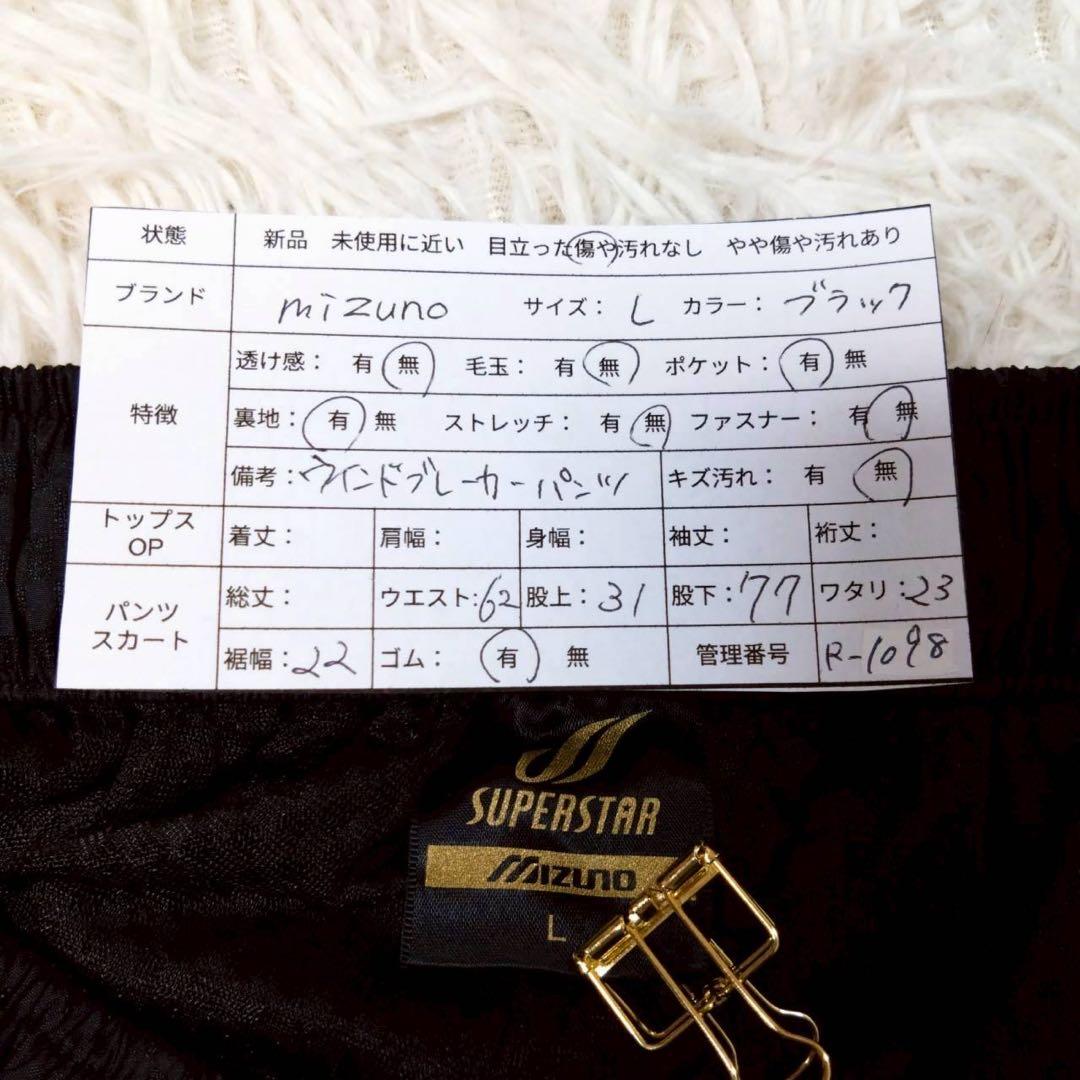 状態 新品 未使用に近い 目立った傷や汚れなし やや傷や汚れあり
ブランド mizuno サイズ： L カラー： ブラック
特徴 透け感： 有 無 毛玉： 有 無 ポケット： 有 無
裏地： 有 無 ストレッチ： 有 無 ファスナー： 有 無
備考： ウインドブレーカーパンツ キズ汚れ： 有 無
トップス OP 着丈： 肩幅： 身幅： 袖丈： 裄丈：
パンツ スカート 総丈： ウエスト： 62 股上： 31 股下： 77 ワタリ： 23
裾幅： 22 ゴム： 有 無 管理番号 R-1098
SUPERSTAR
Mizuno
L